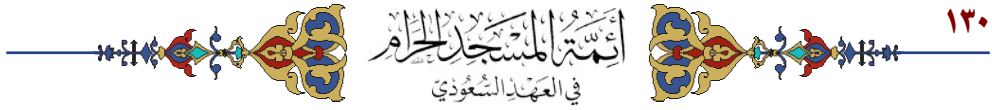 ١٣٠
أَئِمَّةُ المَسْجِدِ الحَرَامِ
فِي العَهْدِ السُّعُودِيّ